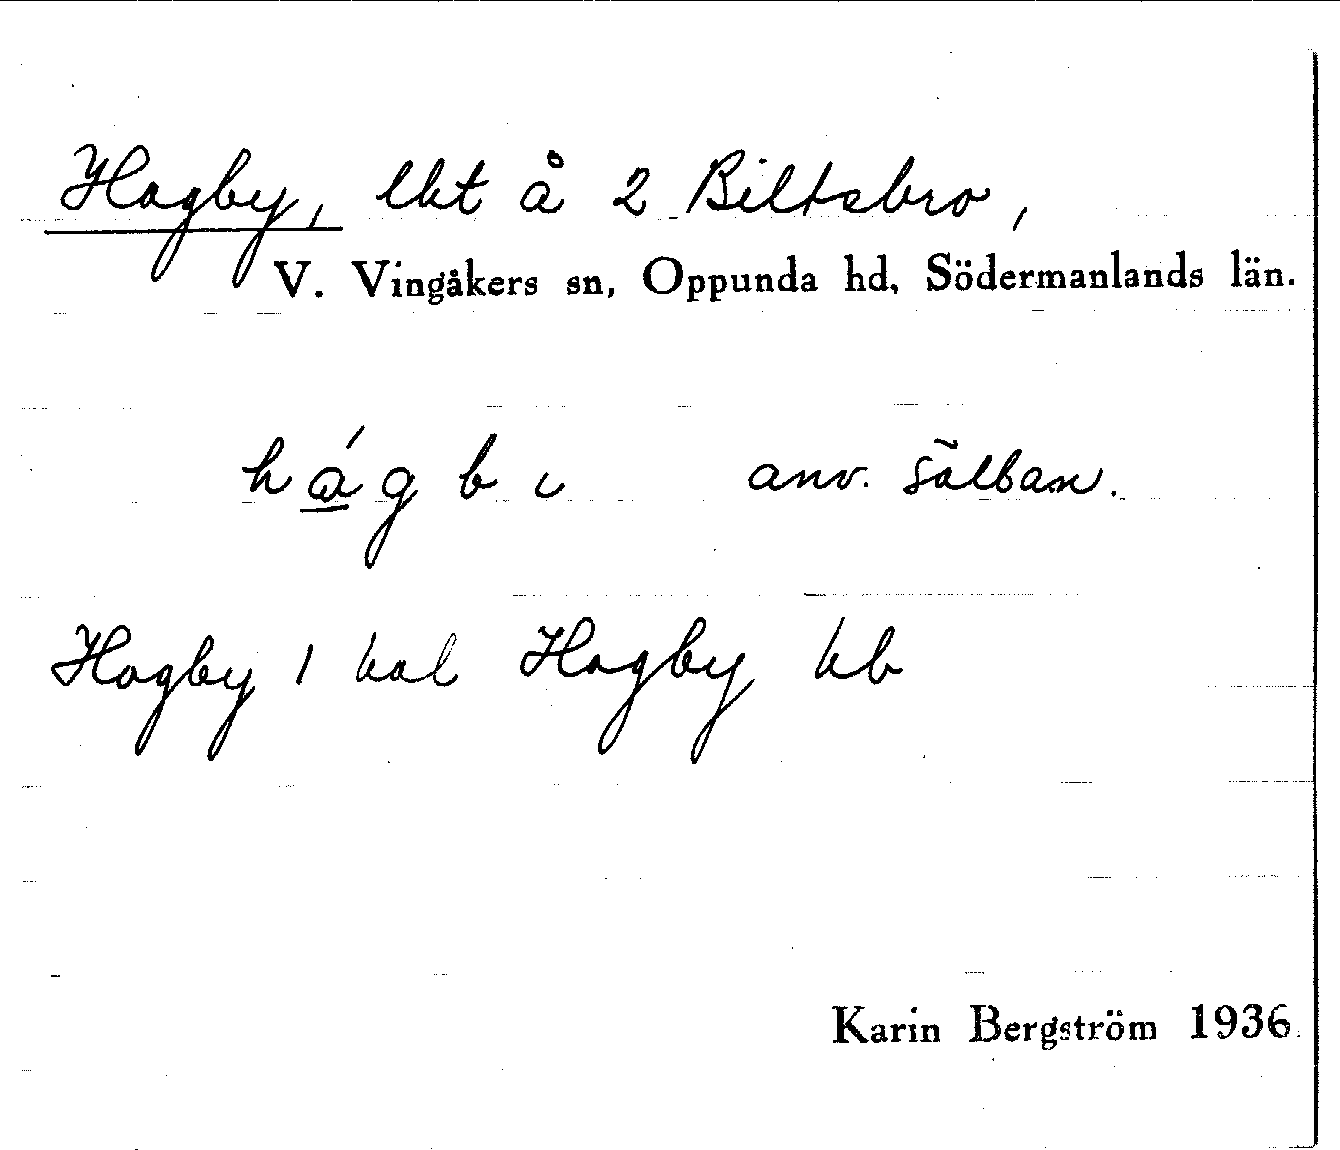 Hagby, lkt å 2 Biltsbro,
V. Vingåkers sn, Oppunda hd, Södermanlands län.
há̱gbɩ anv. sälban.
Hagby / kal Hagby kb
Karin Bergström 1936.